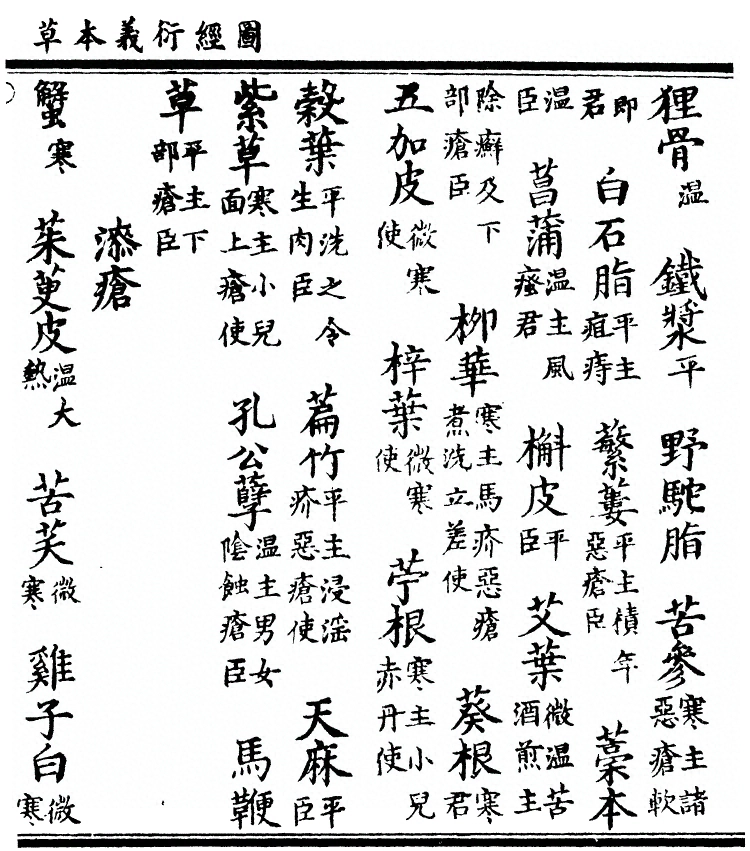 圖經衍義本草
狸骨温 鐵漿平 野駝脂 苦參寒主諸惡瘡軟
即君 白石脂平主疽痔 蘩蔞平主積年惡瘡臣 藁本
温臣 菖蒲温主風瘙君 槲皮平臣 艾葉微温苦酒煎主
除癬及下部瘡臣 柳華寒主馬疥惡瘡煮洗立差使 葵根寒君
五加皮微寒使 梓葉微寒使 苧根寒主小兒赤丹使
榖葉平洗之令生肉臣 篇竹平主浸滛疥惡瘡使 天麻平臣
紫草寒主小兒面上瘡使 孔公孽温主男女陰蝕瘡臣 馬鞭
草平主下部瘡臣
漆瘡
蟹寒 茱萸皮温大熱 苦芙微寒 雞子白微寒